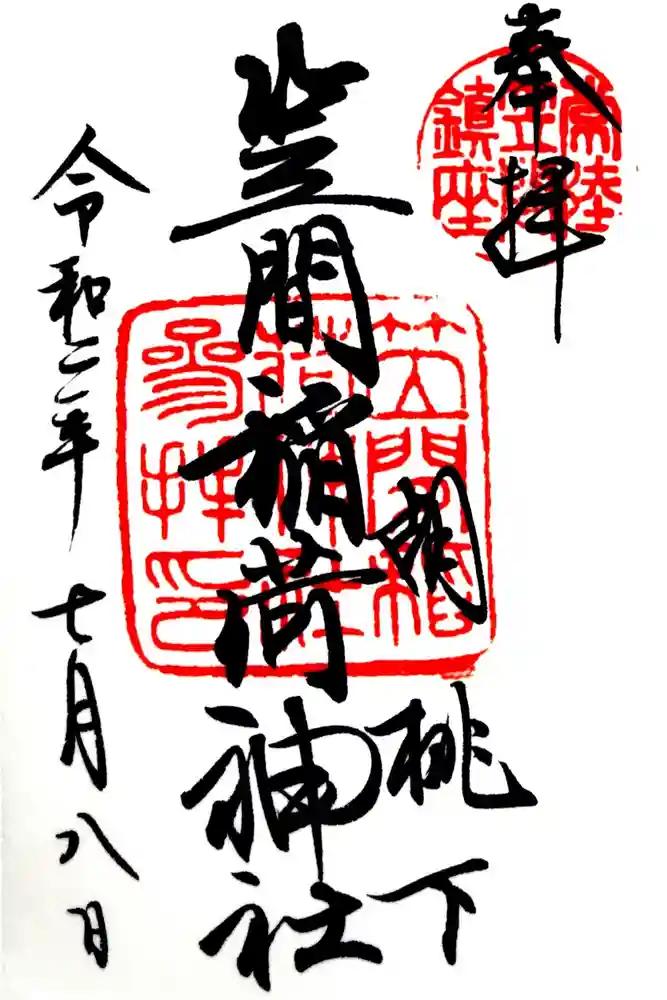 奉拝
常陸
笠間
鎮座
胡桃下
笠間稲荷神社
笠間稲
荷神社
参拝印
令和二年七月八日